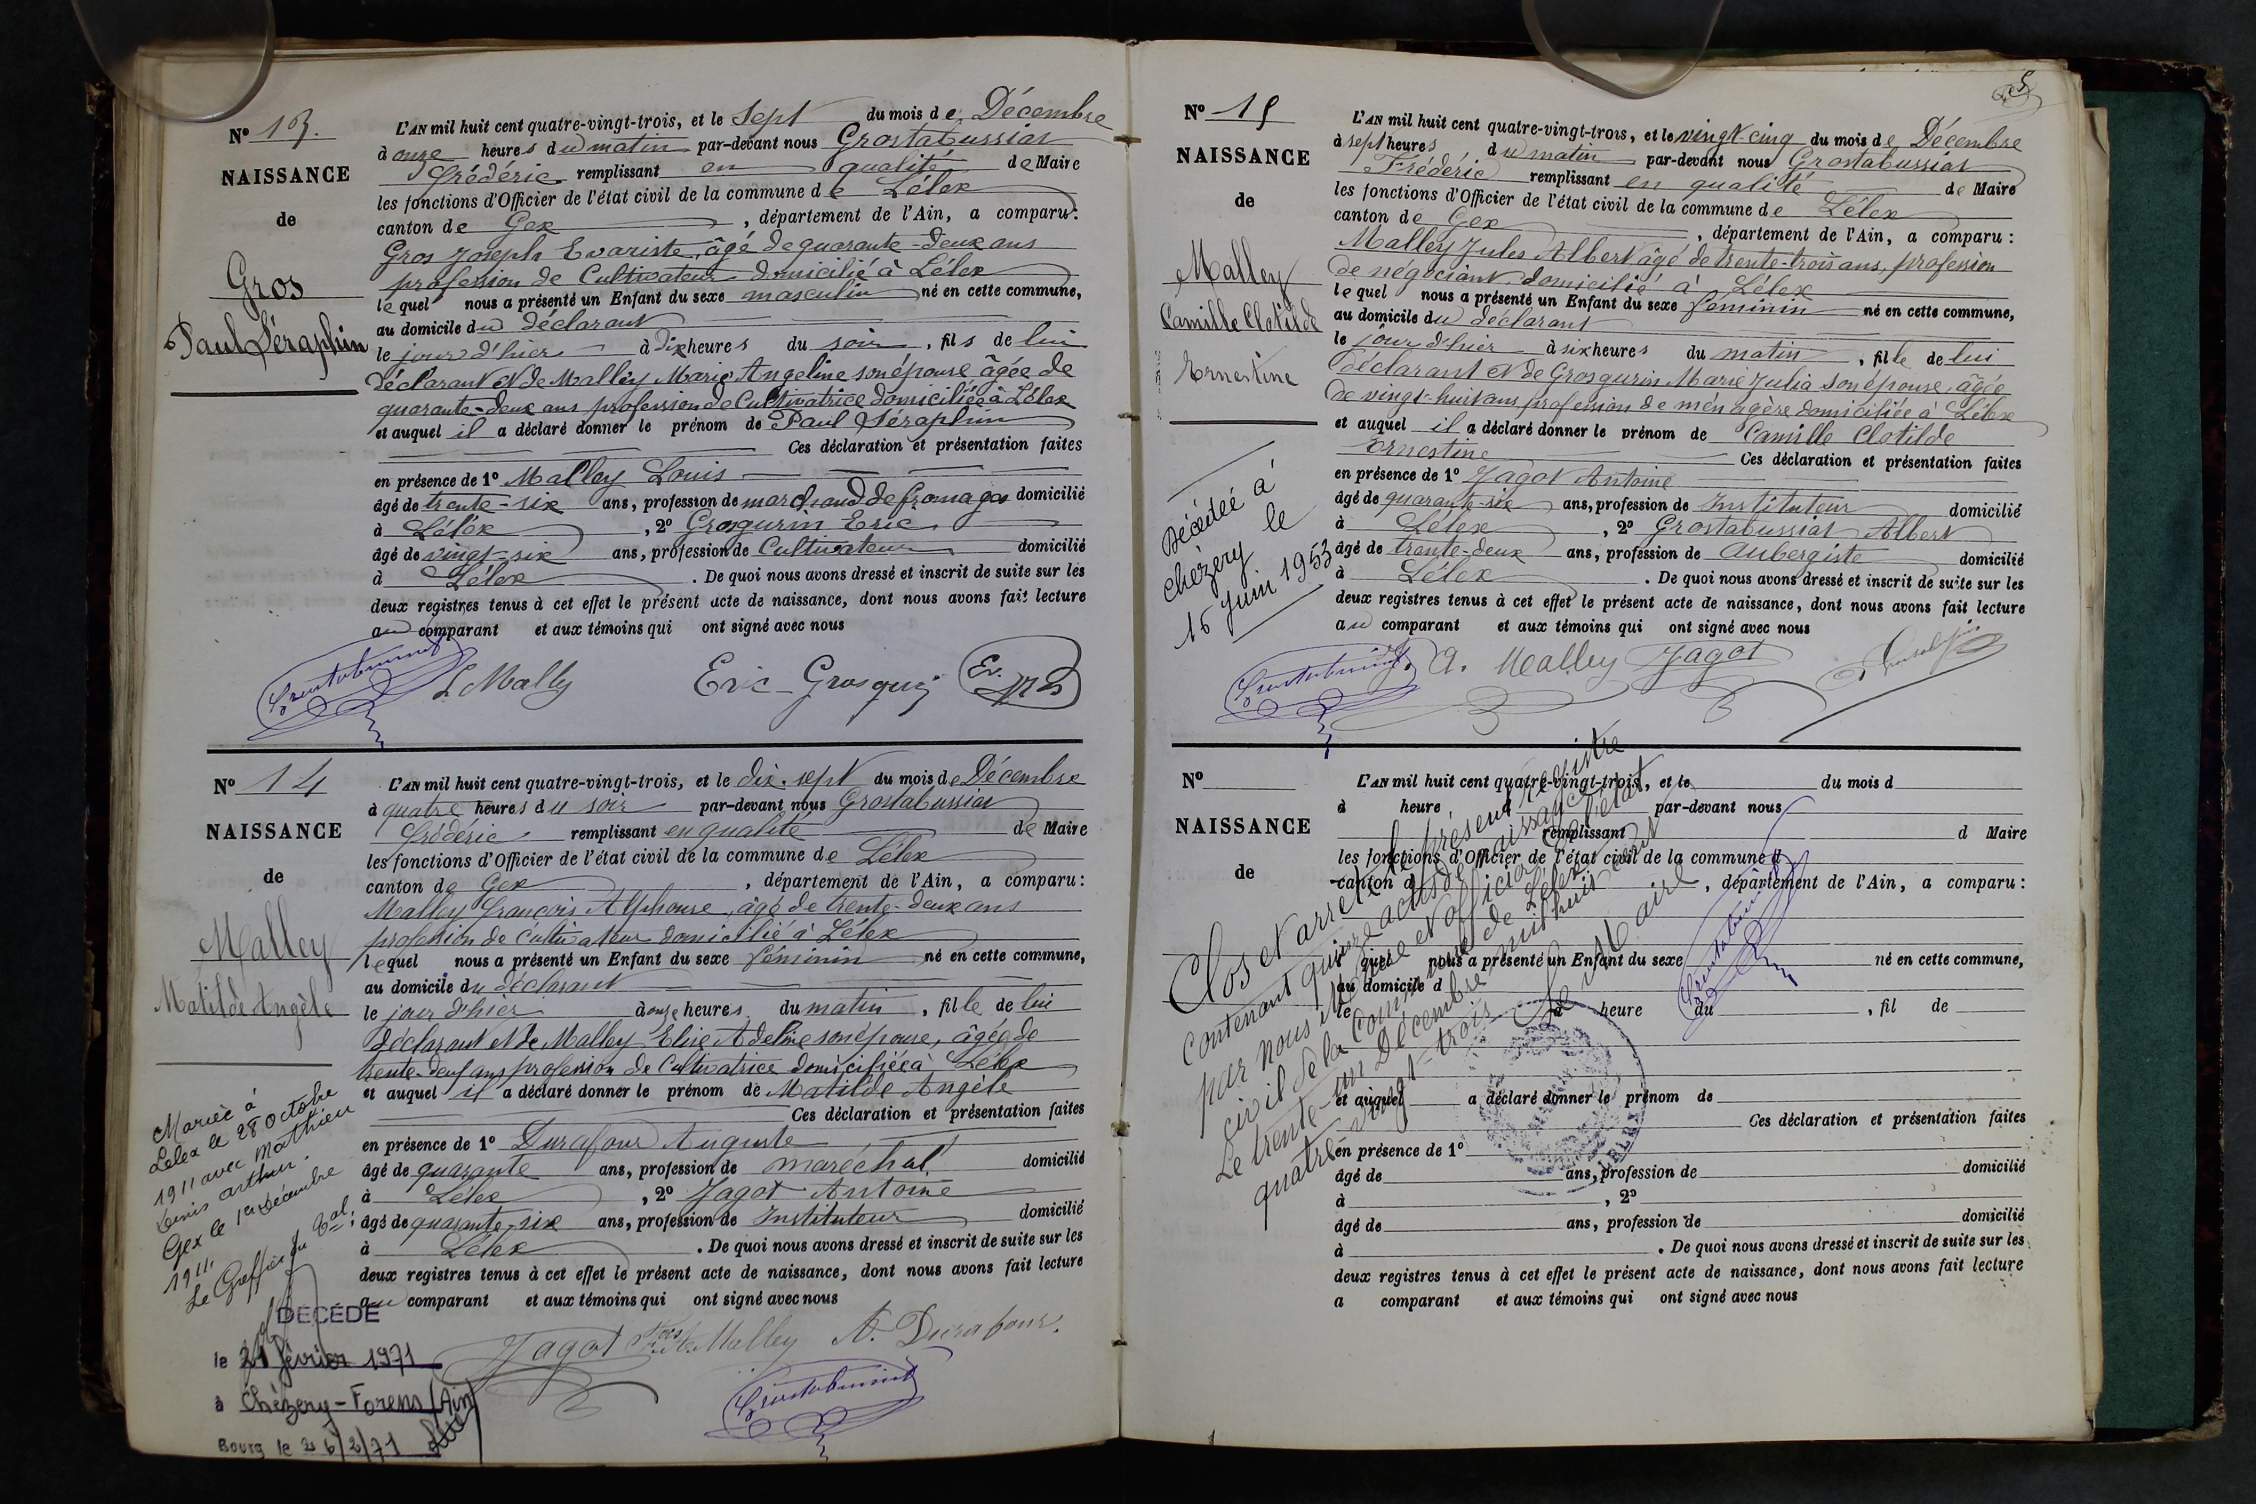 N° 13.
NAISSANCE
de
Gros
Paul Séraphin
L'AN mil huit cent quatre-vingt-trois, et le Sept du mois de Décembre
à onze heures du matin par-devant nous Grostabussiat
Frédéric remplissant en qualité de Maire
les fonctions d'Officier de l'état civil de la commune de Lélex
canton de Gex , département de l'Ain, a comparu:
Gros Joseph Evariste, âgé de quarante-deux ans
profession de Cultivateur domicilié à Lélex
lequel nous a présenté un Enfant du sexe masculin né en cette commune,
au domicile du déclarant
le jour d'hier à dix heures du soir , fils de lui
déclarant et de Malley Marie Angeline son épouse âgée de
quarante-deux ans profession de Cultivatrice domiciliée à Lélex
et auquel il a déclaré donner le prénom de Paul Séraphin
Ces déclaration et présentation faites
en présence de 1° Malley Louis
âgé de trente-six ans, profession de marchand de fromages domicilié
à Lélex , 2° Grosgurin Eric
âgé de vingt-six ans, profession de Cultivateur domicilié
à Lélex . De quoi nous avons dressé et inscrit de suite sur les
deux registres tenus à cet effet le présent acte de naissance, dont nous avons fait lecture
au comparant et aux témoins qui ont signé avec nous
L Mally Eric Grosguri
N° 14
NAISSANCE
de
Malley
Matilde Angèle
Mariée à
Lélex le 28 octobre
1911 avec Mathieu
Denis Arthur.
Gex le 1er Décembre
1911.
Le Greffier du Bal:
DÉCÉDÉ
le 21 février 1971
à Chézery-Forens (Ain)
Bourg le 26/2/71
L'AN mil huit cent quatre-vingt-trois, et le dix-sept du mois de Décembre
à quatre heures du soir par-devant nous Grostabussiat
Frédéric remplissant en qualité de Maire
les fonctions d'Officier de l'état civil de la commune de Lélex
canton de Gex , département de l'Ain, a comparu:
Malley François Alphonse, âgé de trente-deux ans
profession de Cultivateur domicilié à Lélex
lequel nous a présenté un Enfant du sexe féminin né en cette commune,
au domicile du déclarant
le jour d'hier à onze heures du matin , fille de lui
déclarant et de Malley Elise Adeline son épouse, âgée de
trente-deux ans profession de Cultivatrice domiciliée à Lélex
et auquel il a déclaré donner le prénom de Matilde Angèle
Ces déclaration et présentation faites
en présence de 1° Durafour Auguste
âgé de quarante ans, profession de maréchal domicilié
à Lélex , 2° Jagot Antoine
âgé de quarante-six ans, profession de Instituteur domicilié
à Lélex . De quoi nous avons dressé et inscrit de suite sur les
deux registres tenus à cet effet le présent acte de naissance, dont nous avons fait lecture
au comparant et aux témoins qui ont signé avec nous
Jagot Malley A. Durafour.
N° 15
NAISSANCE
de
Malley
Camille Clotilde
Ernestine
Décédée à
Chézery le
16 juin 1953
L'AN mil huit cent quatre-vingt-trois, et le vingt-cinq du mois de Décembre
à sept heures du matin par-devant nous Grostabussiat
Frédéric remplissant en qualité de Maire
les fonctions d'Officier de l'état civil de la commune de Lélex
canton de Gex , département de l'Ain, a comparu:
Malley Jules Albert âgé de trente-trois ans, profession
de négociant, domicilié à Lélex
lequel nous a présenté un Enfant du sexe féminin né en cette commune,
au domicile du déclarant
le jour d'hier à six heures du matin , fille de lui
déclarant et de Grosgurin Marie Julia son épouse, âgée
de vingt-huit ans profession de ménagère domiciliée à Lélex
et auquel il a déclaré donner le prénom de Camille Clotilde
Ernestine Ces déclaration et présentation faites
en présence de 1° Jagot Antoine
âgé de quarante-six ans, profession de Instituteur domicilié
à Lélex , 2° Grostabussiat Albert
âgé de trente-deux ans, profession de aubergiste domicilié
à Lélex . De quoi nous avons dressé et inscrit de suite sur les
deux registres tenus à cet effet le présent acte de naissance, dont nous avons fait lecture
au comparant et aux témoins qui ont signé avec nous
A. Malley Jagot
N°
NAISSANCE
de
L'AN mil huit cent quatre-vingt-trois, et le du mois d
à heure d par-devant nous
remplissant d Maire
les fonctions d'Officier de l'état civil de la commune d
canton d , département de l'Ain, a comparu:
le quel nous a présenté un Enfant du sexe né en cette commune,
au domicile d
le à heure du , fil de
et auquel a déclaré donner le prénom de
Ces déclaration et présentation faites
en présence de 1°
âgé de ans, profession de domicilié
à , 2°
âgé de ans, profession de domicilié
à . De quoi nous avons dressé et inscrit de suite sur les
deux registres tenus à cet effet le présent acte de naissance, dont nous avons fait lecture
a comparant et aux témoins qui ont signé avec nous
Clos et arrêté le présent registre
contenant quinze actes de naissance
par nous Maire et officier de l'état
civil de la commune de Lélex
Le trente-un Décembre mil huit cent
quatre-vingt-trois
Le Maire
LELEX